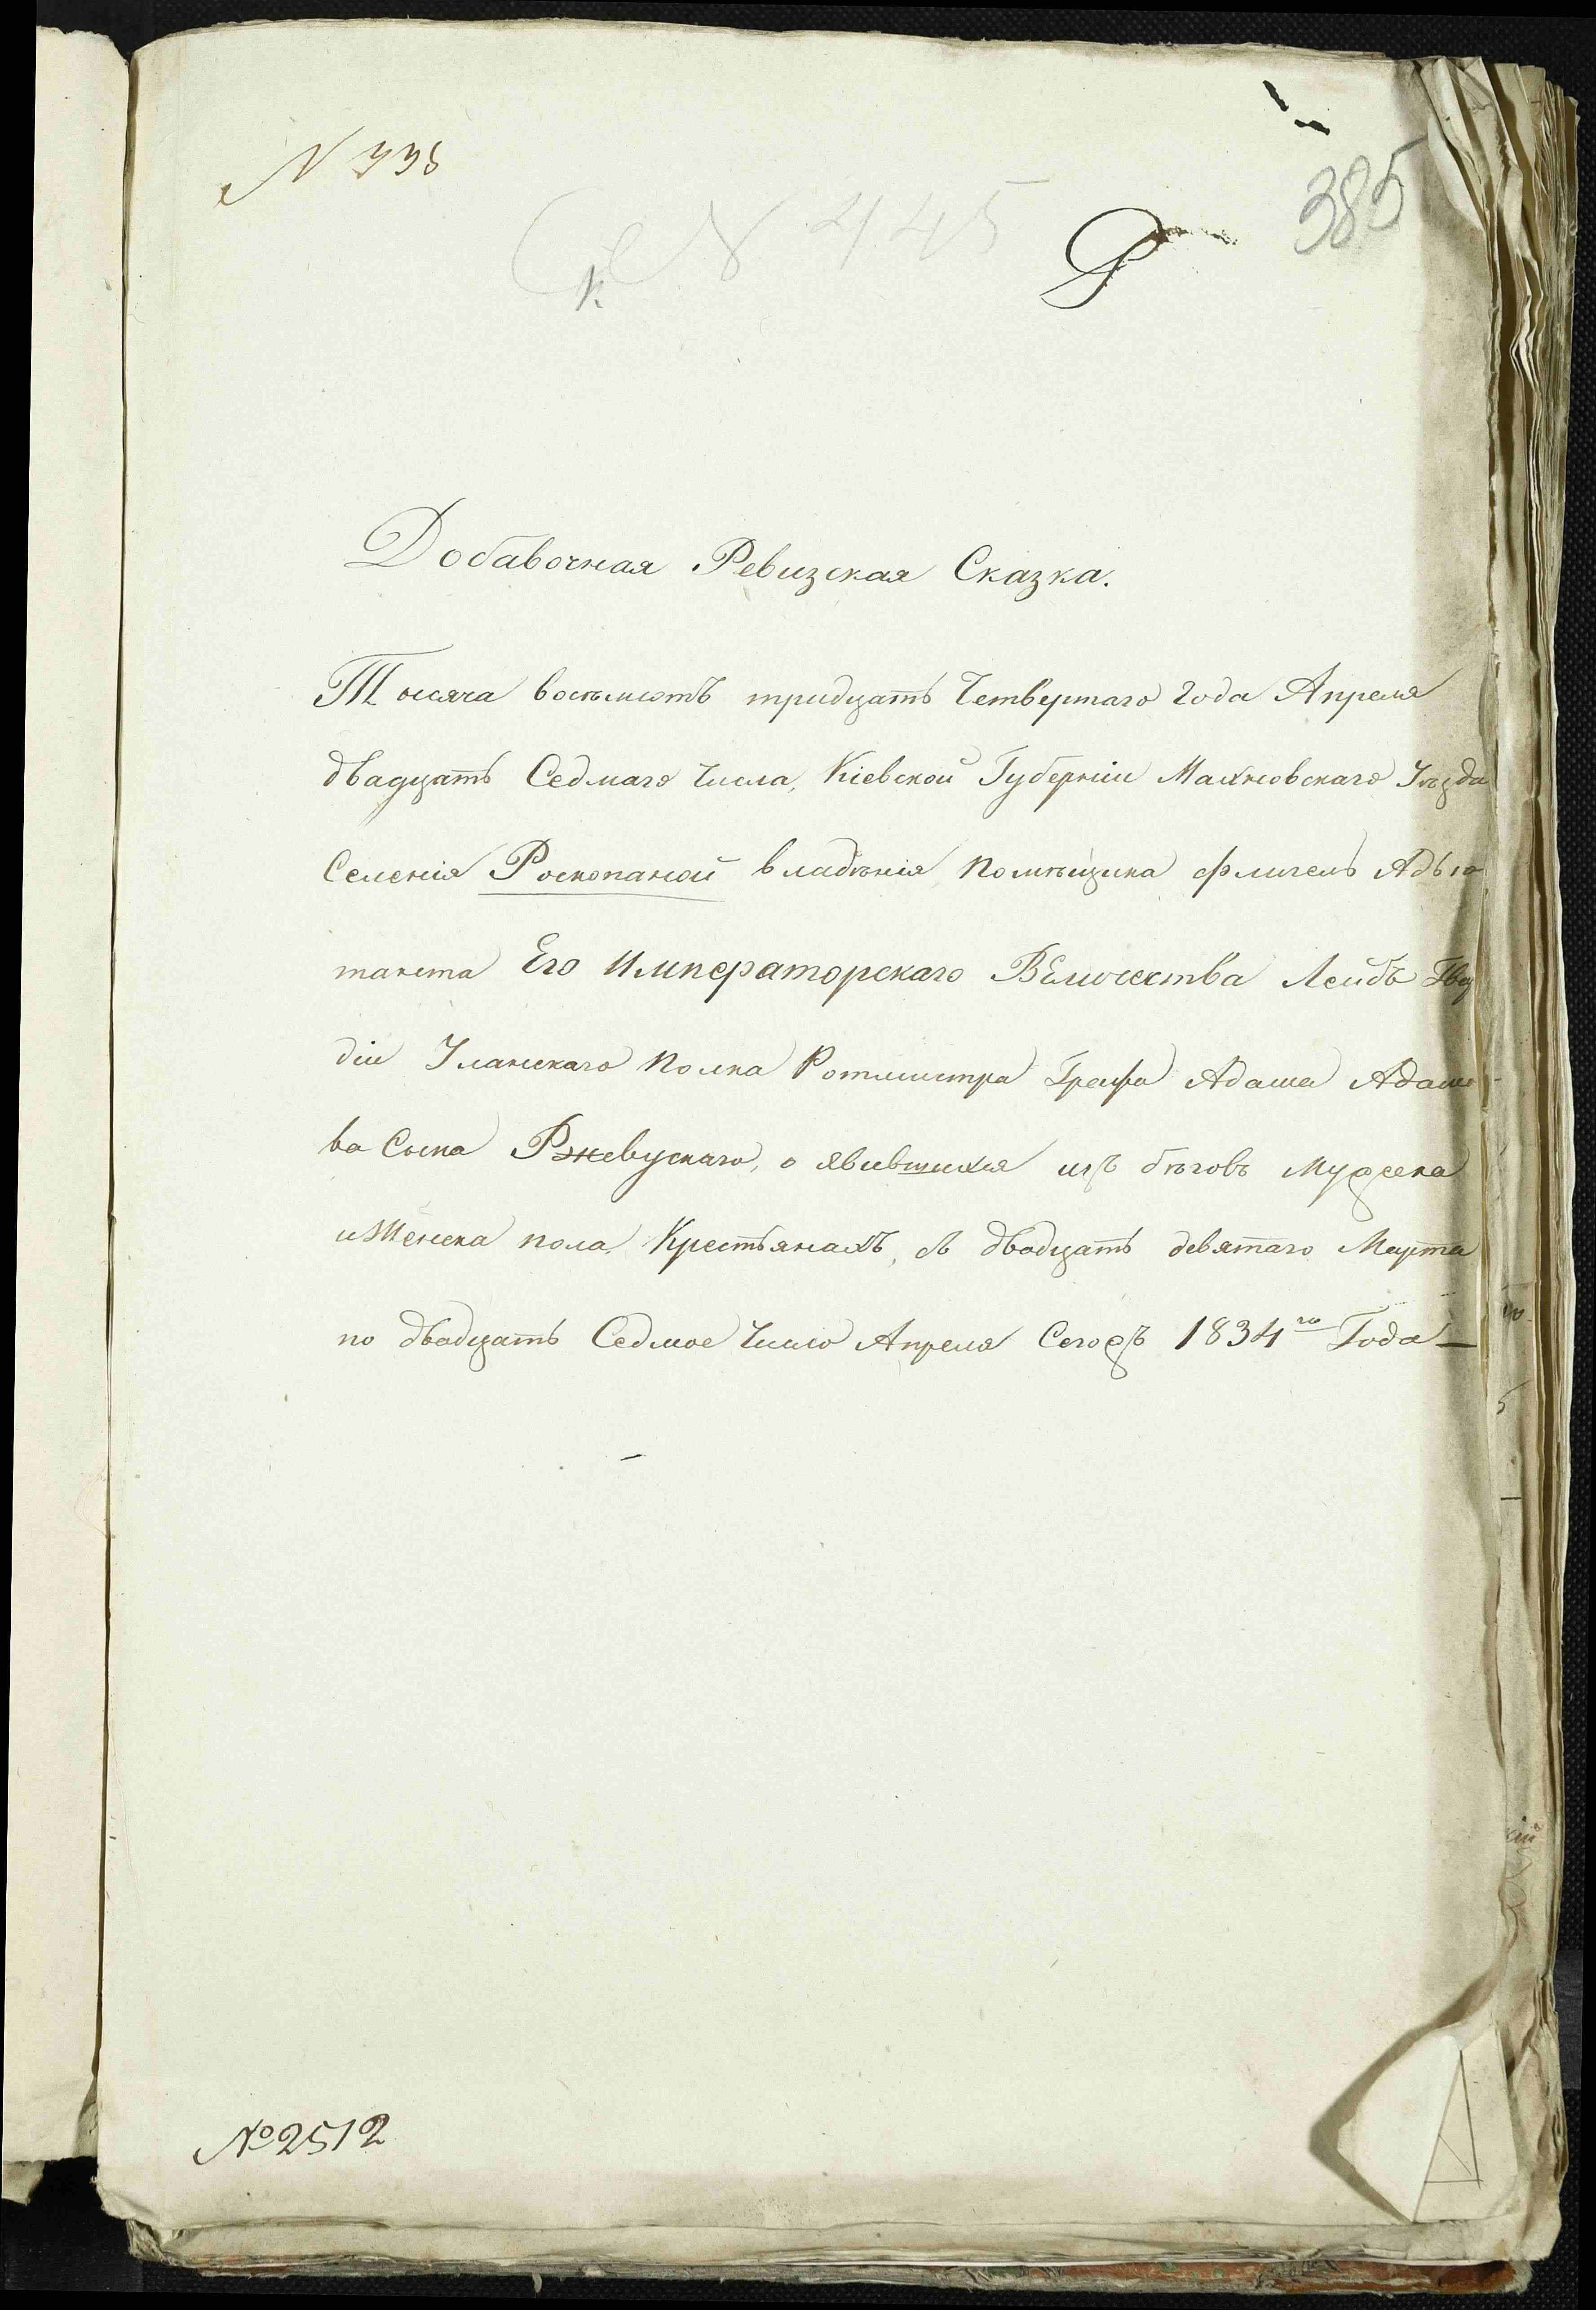 385
N 445
Р
Добавочная Ревизская Сказка.
Тысяча восемьсотъ тридцать Четвертаго Года Апреля
двадцать Седмаго Числа, Кіевской Губерніи Махновскаго Уѣзда
Селенія Роскопаной владѣнія Помѣщика флигель Адъю
танта Его Императорскаго Величества Лейбъ
діи Уланскаго Полка Ротмистра Графа Адама Адамо
ва Сына Ржевускаго, о явившихся изъ бѣговъ Мужеска
и Женска пола Крестьянахъ, съ двадцать девятаго Марта
по двадцать Седмое Число Апреля Сегожъ 1834го Года —
№ 2512